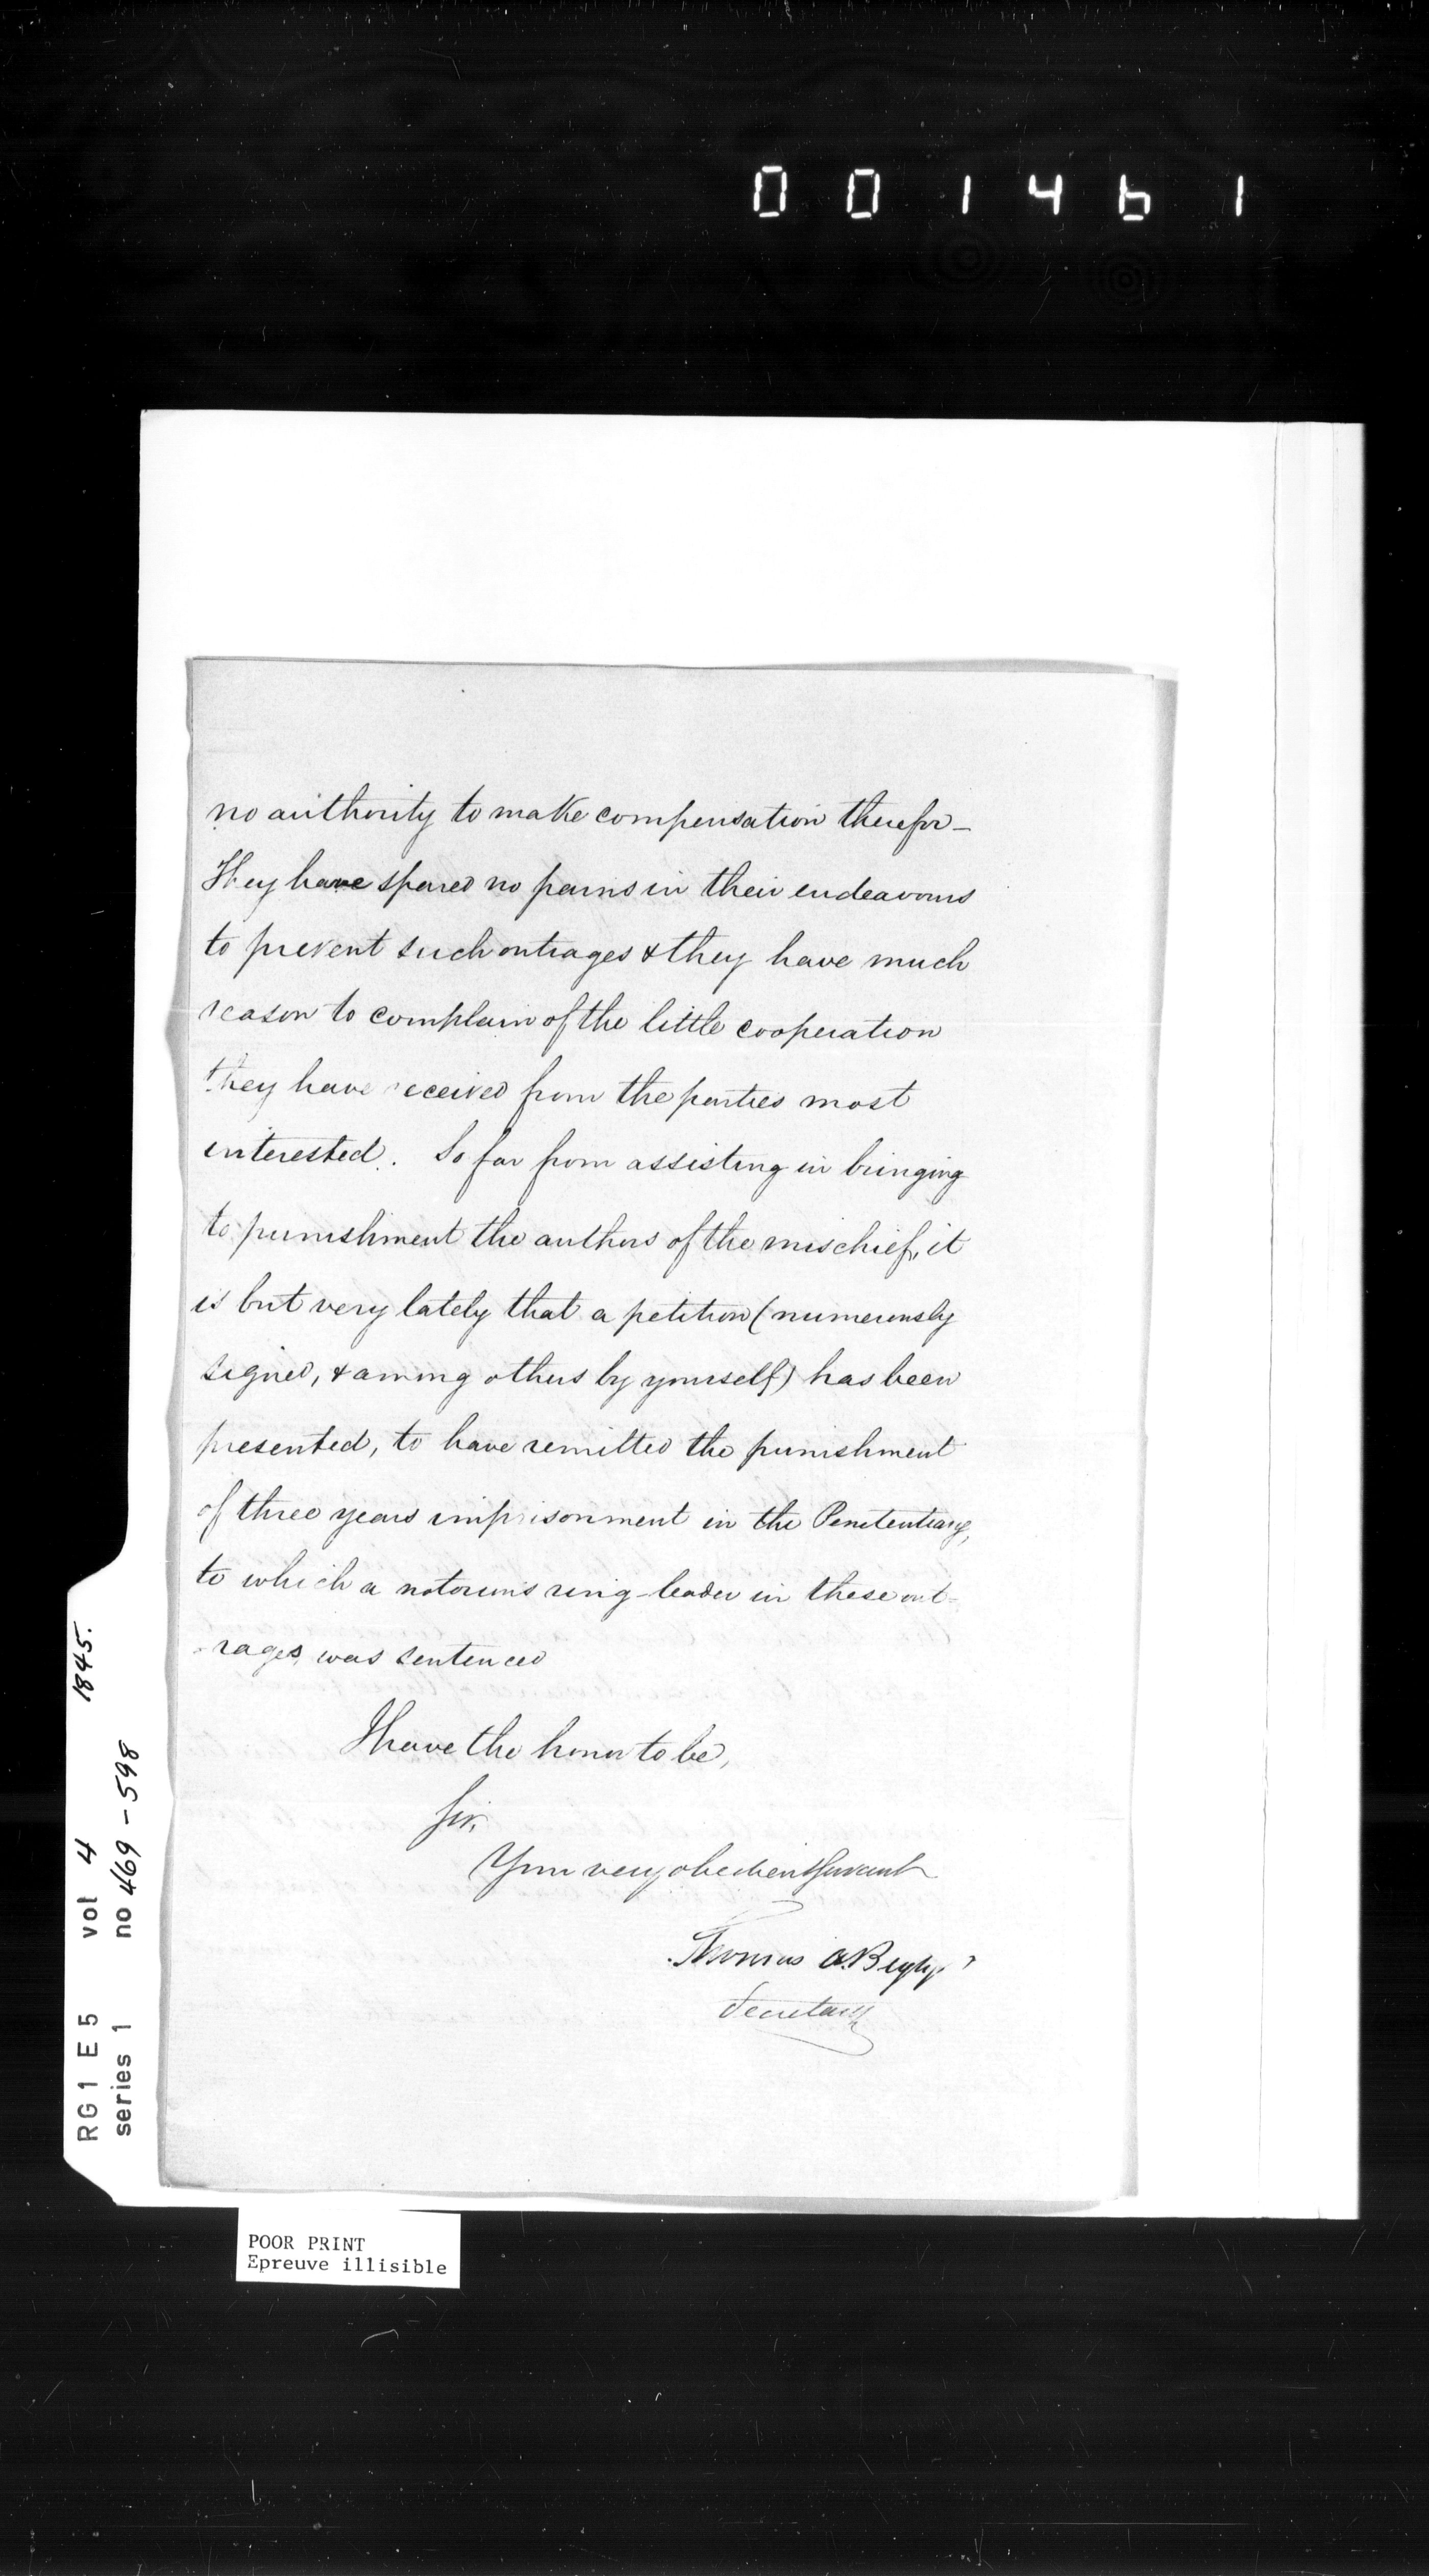 001461
no authority to make compensation therefor_
They have spared no pains in their endeavours
to prevent such outrages & they have much
reason to complain of the little cooperation
they have received from the parties most
interested. So far from assisting in bringing
to punishment the authors of the mischief, it
is but very lately that a petition (numerously
signed, & among others by yourself) has been
presented, to have remitted the punishment
of three years imprisonment in the Penitentiary,
to which a notorious ring-leader in these out-
rages, was sentenced
I have the honor to be,
Sir,
Your very obedient Servant
Thomas A. Begly
Secretary
RG1 E5 vol 4 1845.
series 1 no 469-598
POOR PRINT
Epreuve illisible